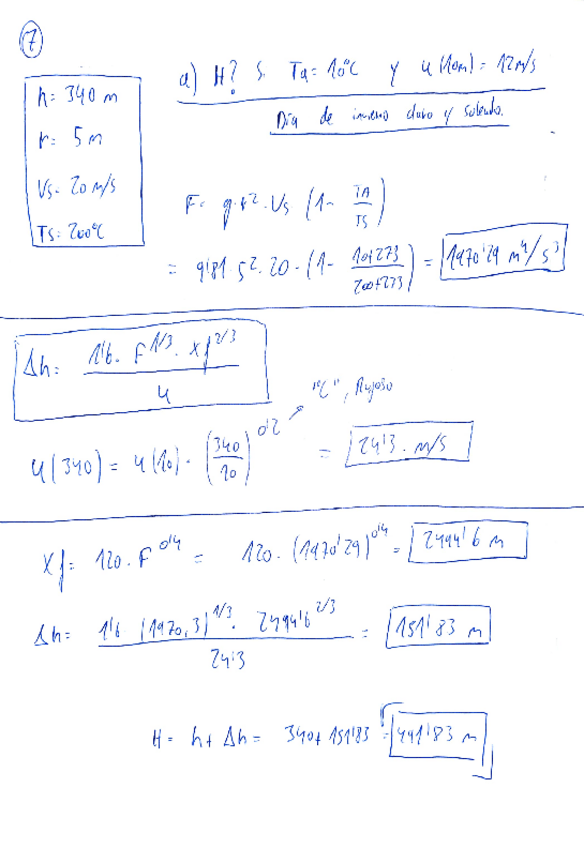 7
a) H? Si Ta = 10°C y u(10m) = 12 m/s
Día de invierno claro y soleado.
h = 340 m
r = 5 m
Vs = 20 m/s
Ts = 200°C
F = g·r²·Vs (1 - TA/TS)
= 9'81·5²·20·(1 - 10+273/200+273) = 1970'29 m⁴/s³
Δh = 1'6 · F^1/3 · Xf^2/3 / u
"C", Rugoso
u(340) = u(10) · (340/10)^0'2 = 24'3 · m/s
Xf = 120 · F^0'4 = 120 · (1970'29)^0'4 = 2494'6 m
Δh = 1'6 (1970,3)^1/3 · 2494'6^2/3 / 24'3 = 151'83 m
H = h + Δh = 340 + 151'83 = 491'83 m